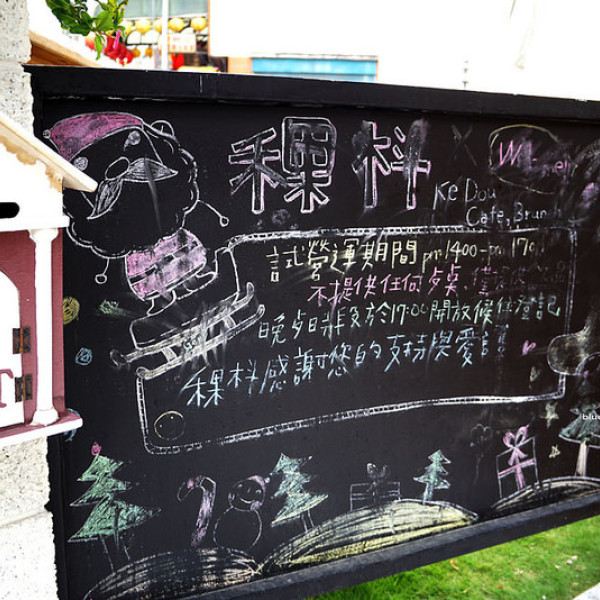 稞枓
Ke Dou
Cafe, Brunch
試營運期間 pm 1400-pm 170
不提供任何
晚 時段於17:00開放候位登記
稞枓感謝您的支持與愛護